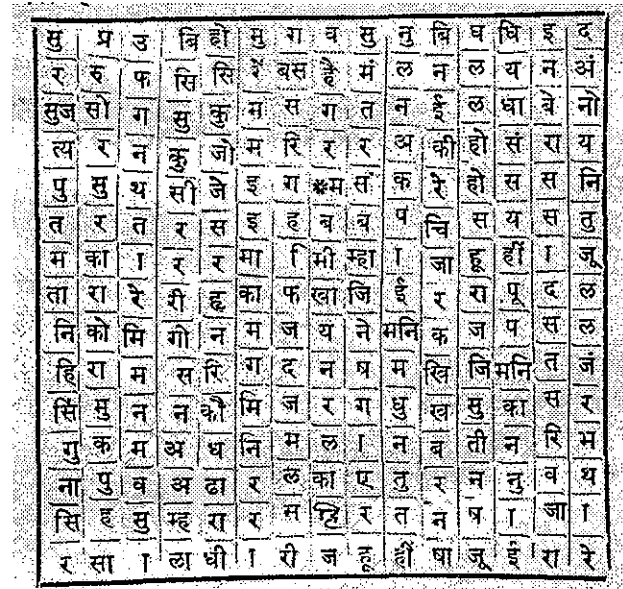 सु प्र उ बि हो मु ग व सु नु बि घ धि इ द
र रु फ सि सि रें बस है मं ल न ल य न अं
सुज सो ग सु कु म स ग त न ईं ल धा बे नो
त्य र न कु जो म रि र र अ की हो सं रा य
पु सु थ सी जे इ ग *म सं क रे हो स स नि
त र त र स इ ह ब ब प चि स य स तु
म का ा र र मा ि मी म्हा ा जा हू हीं ा जू
ता रा रे री हृ का फ खा जि ईं र रा पू द ल
नि को मि गो न म ज य ने मनि क ज प स ल
हि रा म स रि ग द न ष म खि जि मनि त जं
सिं मु न न कौ मि ज र ग धु ख सु का स र
गु क म अ ध नि म ल ा न ब ती न रि भ
ना पु व अ ढा र ल का ए तु र न नु व थ
सि ह सु म्ह रा र स हिं र त न ष ा जा ा
र सा ा ला धी ा री ज हू हीं षा जू ईं रा रे